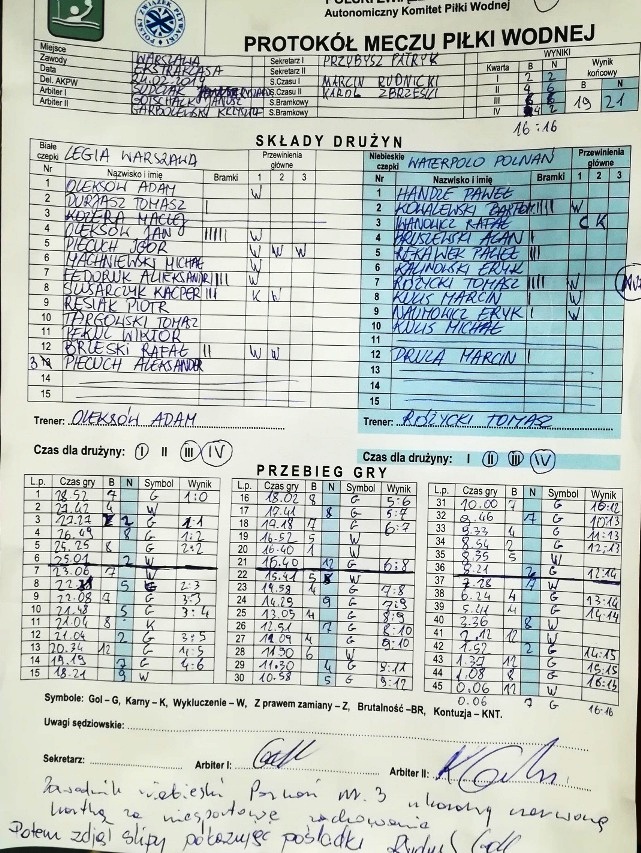 POLSKI ZWIĄZEK
Autonomiczny Komitet Piłki Wodnej
POLSKI ZWIĄZEK PŁYWACKI
PROTOKÓŁ MECZU PIŁKI WODNEJ
Miejsce WARSZAWA Sekretarz I PRZYBYSZ PATRYK WYNIKI
Zawody EKSTRAKLASA Sekretarz II Kwarta B N Wynik końcowy
Data 24.02.2019 S.Czasu I MARCIN RUDNICKI I 2 2 B N
Del. AKPW S.Czasu II KAROL ZBRZESKI II 4 6 19 21
Arbiter I GOTSCHALK JANUSZ S.Bramkowy III
Arbiter II S.Bramkowy IV 4 2
16:16
SKŁADY DRUŻYN
Białe czepki LEGIA WARSZAWA Przewinienia główne
Nr Nazwisko i imię Bramki 1 2 3
1 OLEKSÓW ADAM W
2 DURTASZ TOMASZ I
3 KOZERA MACIEJ
4 OLEKSÓW JAN IIIII W
5 PIECUCH IGOR W W W
6 MACHNIEWSKI MICHAŁ W
7 FEDORUK ALIEKSANDR III W
8 ŚLUSARCZYK KACPER III K W
9 RESIAK PIOTR
10 TARGOWSKI TOMASZ
11 PEKUL WIKTOR
12 BRZESKI RAFAŁ II W W
13 PIECUCH ALEKSANDER
14
15
Trener: OLEKSÓW ADAM
Czas dla drużyny: I II III IV
Niebieskie czepki WATERPOLO POZNAŃ Przewinienia główne
Nr Nazwisko i imię Bramki 1 2 3
1 HANDZE PAWEŁ
2 KOWALEWSKI BARTOSZ IIII W
3 IWANOWICZ RAFAŁ C K
4 BRUSZEWSKI ALAN I
5 REKAWEK PAWEŁ III
6 KALINOWSKI ERYK
7 RÓŻYCKI TOMASZ IIII W
8 KULIS MARCIN I W
9 NAUMOWICZ ERYK I W
10 KULIS MICHAŁ
11
12 DRULA MARCIN I
13
14
15
Trener: RÓŻYCKI TOMASZ
Czas dla drużyny: I II III IV
PRZEBIEG GRY
L.p. Czas gry B N Symbol Wynik
1 28.52 7 G 1:0
2 27.42 4 W
3 27.27 2 G 1:1
4 26.49 8 G 1:2
5 25.25 8 G 2:2
6 25.01 2 W
7 23.06 7 W
8 5 G 2:3
9 22.08 7 G 3:3
10 21.48 5 G 3:4
11 21.04 8 K
12 21.04 2 G 3:5
13 20.34 12 G 4:5
14 19.19 7 G 4:6
15 18.21 9 W
L.p. Czas gry B N Symbol Wynik
16 18.02 8 G 5:6
17 17.41 8 G 5:7
18 17.18 7 G 6:7
19 16.52 5 W
20 16.40 1 W
21 15.40 12 G 6:8
22 15.41 5 W
23 19.58 4 G 7:8
24 14.29 9 G 7:9
25 13.05 4 G 8:9
26 12.51 7 G 8:10
27 12.09 4 G 9:10
28 11.30 6 W
29 11.30 4 G 9:11
30 10.58 5 G 9:12
L.p. Czas gry B N Symbol Wynik
31 10.00 7 G 10:12
32 9.46 7 G 10:13
33 9.33 4 G 11:13
34 8.54 2 G 12:13
35 8.35 5 W
36 8.21 2 G 12:14
37 7.28 7 W
38 6.24 4 G 13:14
39 5.41 4 G 14:14
40 2.36 8 W
41 2.12 12 W
42 1.52 2 G 14:15
43 1.37 12 G 15:15
44 1.08 8 G 16:15
45 0.06 12 W
0.06 7 G 16:16
Symbole: Gol – G, Karny – K, Wykluczenie – W, Z prawem zamiany – Z, Brutalność –BR, Kontuzja – KNT.
Uwagi sędziowskie:
Sekretarz: Arbiter I: Arbiter II:
Zawodnik niebieski Poznań nr. 3 ukarany czerwoną
kartką za niesportowe zachowanie
Potem zdjął slipy pokazując pośladki